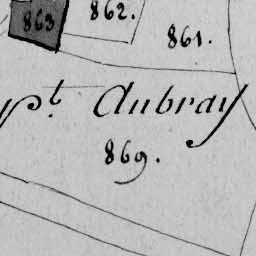 863
862.
861.
pt. Aubray
869.